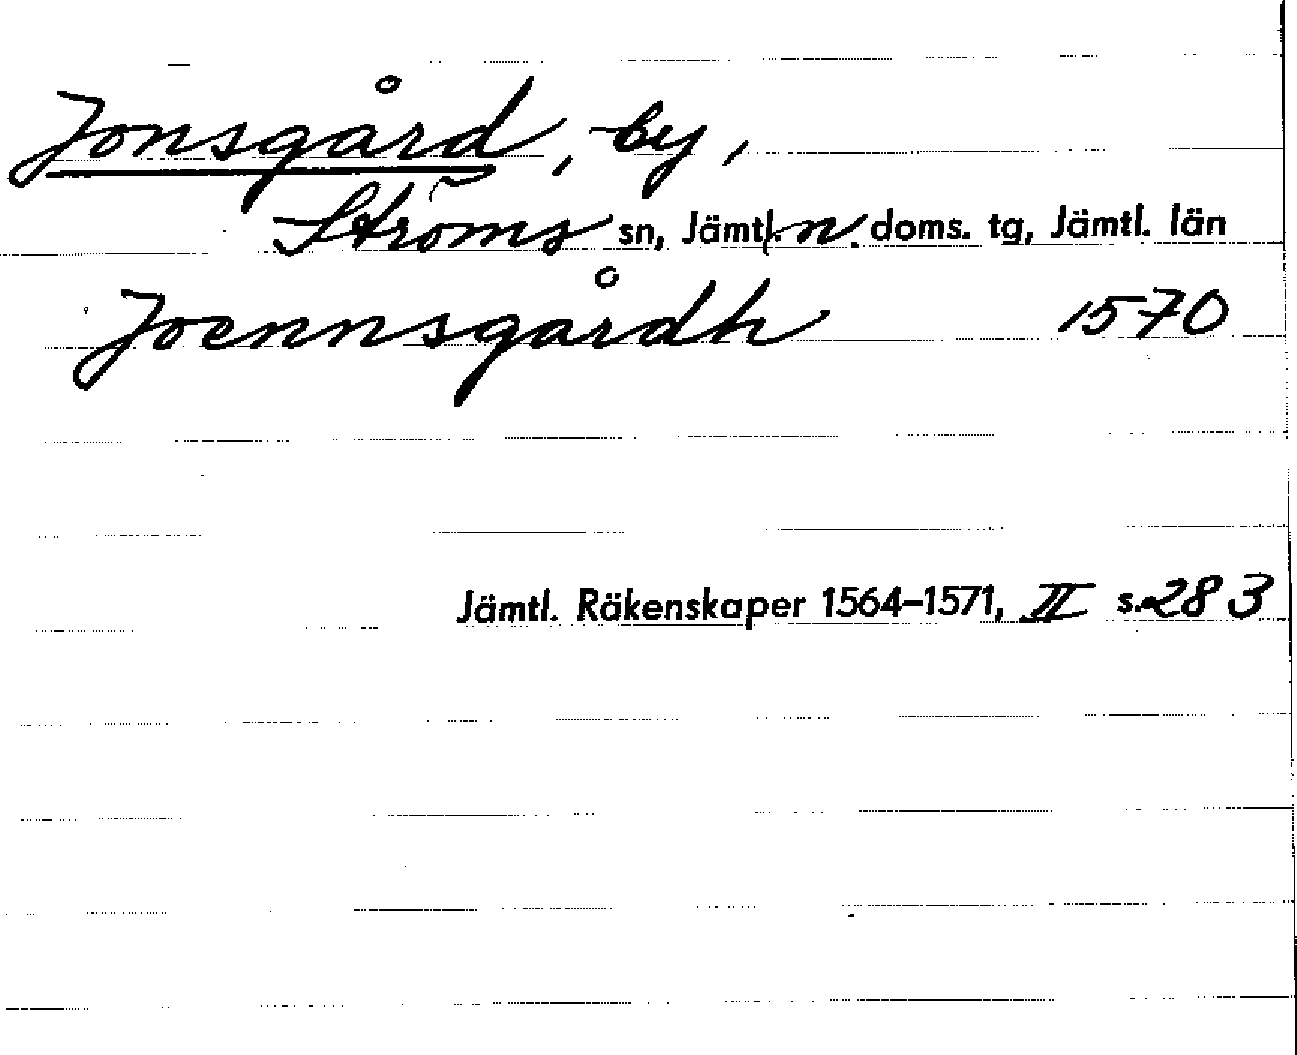 Jonsgård, by,
Ströms sn, Jämtl. n. doms. tg, Jämtl. län
Joennsgårdh 1570
Jämtl. Räkenskaper 1564–1571, II s. 283